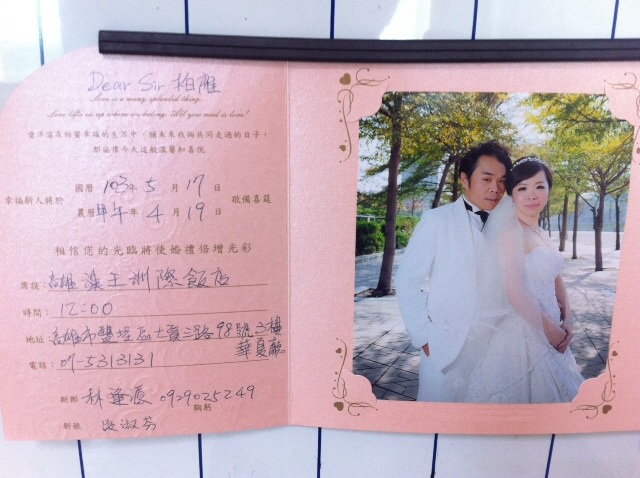 Dear Sir 柏雁
Love is a many splended thing.
Love lifts us up where we belong. All you need is love!
愛洋溢在相愛幸福的生活中，願未來我倆共同走過的日子，
都能像今天這般溫馨和喜悅
國曆 103年 5 月 17 日
幸福新人將於 敬備喜筵
農曆 甲午年 4 月 19 日
相信您的光臨將使婚禮倍增光彩
席設：高雄 漢王洲際飯店
時間：12:00
地址：高雄市鹽埕區七賢三路98號三樓
華夏廳
電話：07-5313131
新郎 林 0929025249
鞠躬
新娘 淑芬